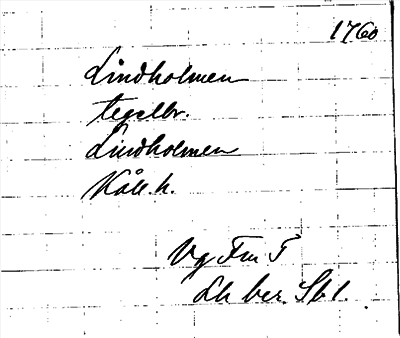 1760
Lindholmen
tegelbr.
Lindholmen
Kåll. h.
Vg Fm T
Lh ber. Sbl.